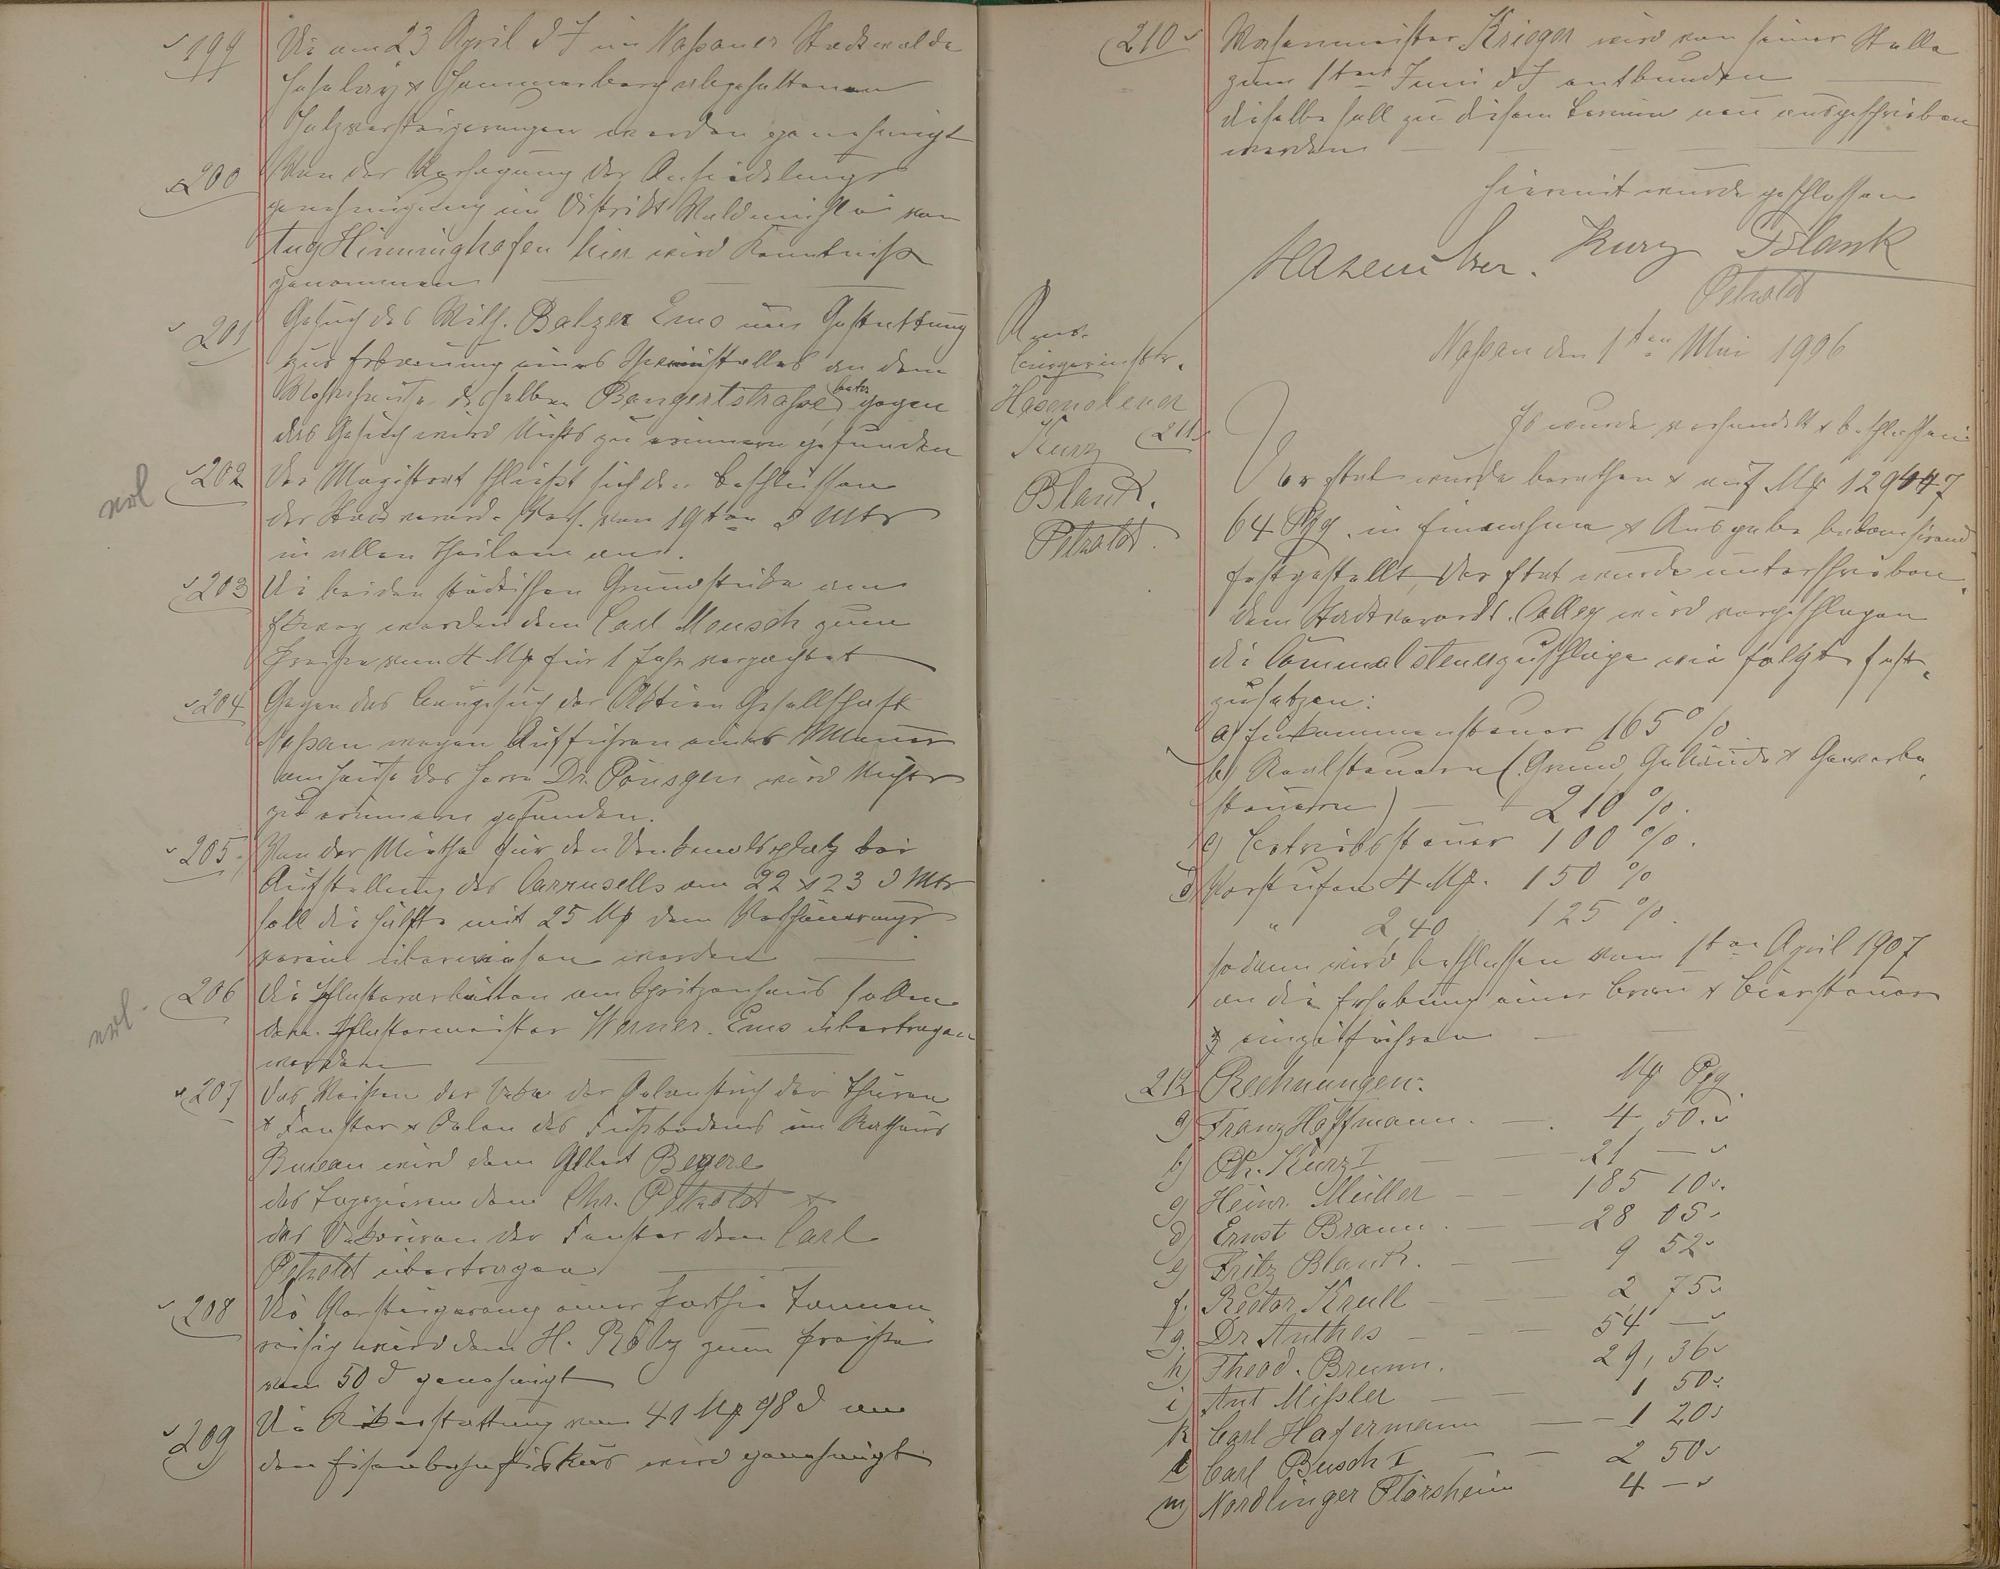 199 Die am 23 April d J im Nassauer Stadtwalde
Hohelay & Hammerberg abgehaltenen
Holzversteigerungen werden genehmigt
200 Von der Versagung der Ansiedelungs
genehmigung im District von
Aug Hinninghofen hier wird Kenntniß
genommen
201 Gesuch des Wilh. Balzer Ems um Gestattung
zur Erbauung eines an dem
Wohnhause desselben Bongertstraße betr gegen
das Gesuch wird Nichts zu erinnern gefunden
vol
202 Der Magistrat schließt sich den Beschlüssen
der Stadtverord. Vers. vom 19ten d Mts
in allen Theilen an.
203 Die beiden städtischen Grundstücke am
werden dem Carl Mensch zum
Preise von 4 Mk für 1 Jahr verpachtet
204 Gegen das Baugesuch der Aktien Gesellschaft
Nassau wegen Aufführen einer Mauer
am Hause des Herrn Dr. Pönsgen wird Nichts
zu erinnern gefunden.
205 Von der Miethe für den Denkmalsplatz bei
Aufstellung des Carrusells am 22 & 23 d Mts
soll die Hälfte mit 25 Mk dem Verschönerungs
verein überwiesen werden
vol.
206 Die Pflasterarbeiten am Spritzenhaus sollen
dem Pflastermeister Werner Ems übertragen
werden
207 Das Weißen der Decke der Oelanstrich der Thüren
& Fenster & Oelen des Fußbodens im Rathaus
Bureau wird dem Albert Begere
das Tapezieren dem Chr. Petzoldt &
das Dekoriren der Fenster dem Carl
Petzoldt übertragen
208 Die Versteigerung einer Parthie Tannen
reisig wird dem H. Rölz zum Preise
von 50 d genehmigt
209 Die Rückerstattung von 41 Mk 98 d an
den Eisenbahnfiskus wird genehmigt
210 Wasenmeister Krieger wird von seiner Stelle
zum 1ten Juni d J entbunden
dieselbe soll zu diesem Termin neu ausgeschrieben
werden
Hiermit wurde geschlossen
Hasenclever. Kurz Blank
Petzoldt
Nassau den 1ten Mai 1906
Anw.
Bürgermstr.
Hasenclever
Kurz
Blank.
Petzoldt.
Es wurde verhandelt & beschlossen
211 Der Etat wurde berathen & auf Mk 129447
64 Pfg. in Einnahme & Ausgabe balancirend
festgestellt, Der Etat wurde unterschrieben.
dem Stadtverordt. Colleg wird vorgeschlagen
die Communalsteuerzuschläge wie folgt fest
zusetzen:
a) Einkommensteuer 165 %
b) Realsteuern (Grund, Gebäude & Gewerbe
steuern) 210 %.
c) Betriebssteuer 100 %.
d) Vorstufen 4 Mk. 150 %
" 2 40 125 %.
sodann wird beschlossen vom 1ten April 1907
an die Erhebung einer Brau & Biersteuer
einzuführen
212 Rechnungen. Mk Pfg
a) Franz Hoffmann. 4 50.
b) Ph. Kurz I 21 —
c) Heinr. Müller 185 10.
d) Ernst Braun. 28 05
e) Fritz Blank. 9 52
f. Rector Krull 2 75
g. Dr Anthes 54 —
h) Theod. Brunn. 29, 36
i) Ant Mißler 1 50
k Carl Hafermann 1 20
l Carl Busch I 2 50
m) Nordlinger Flörsheim 4 —